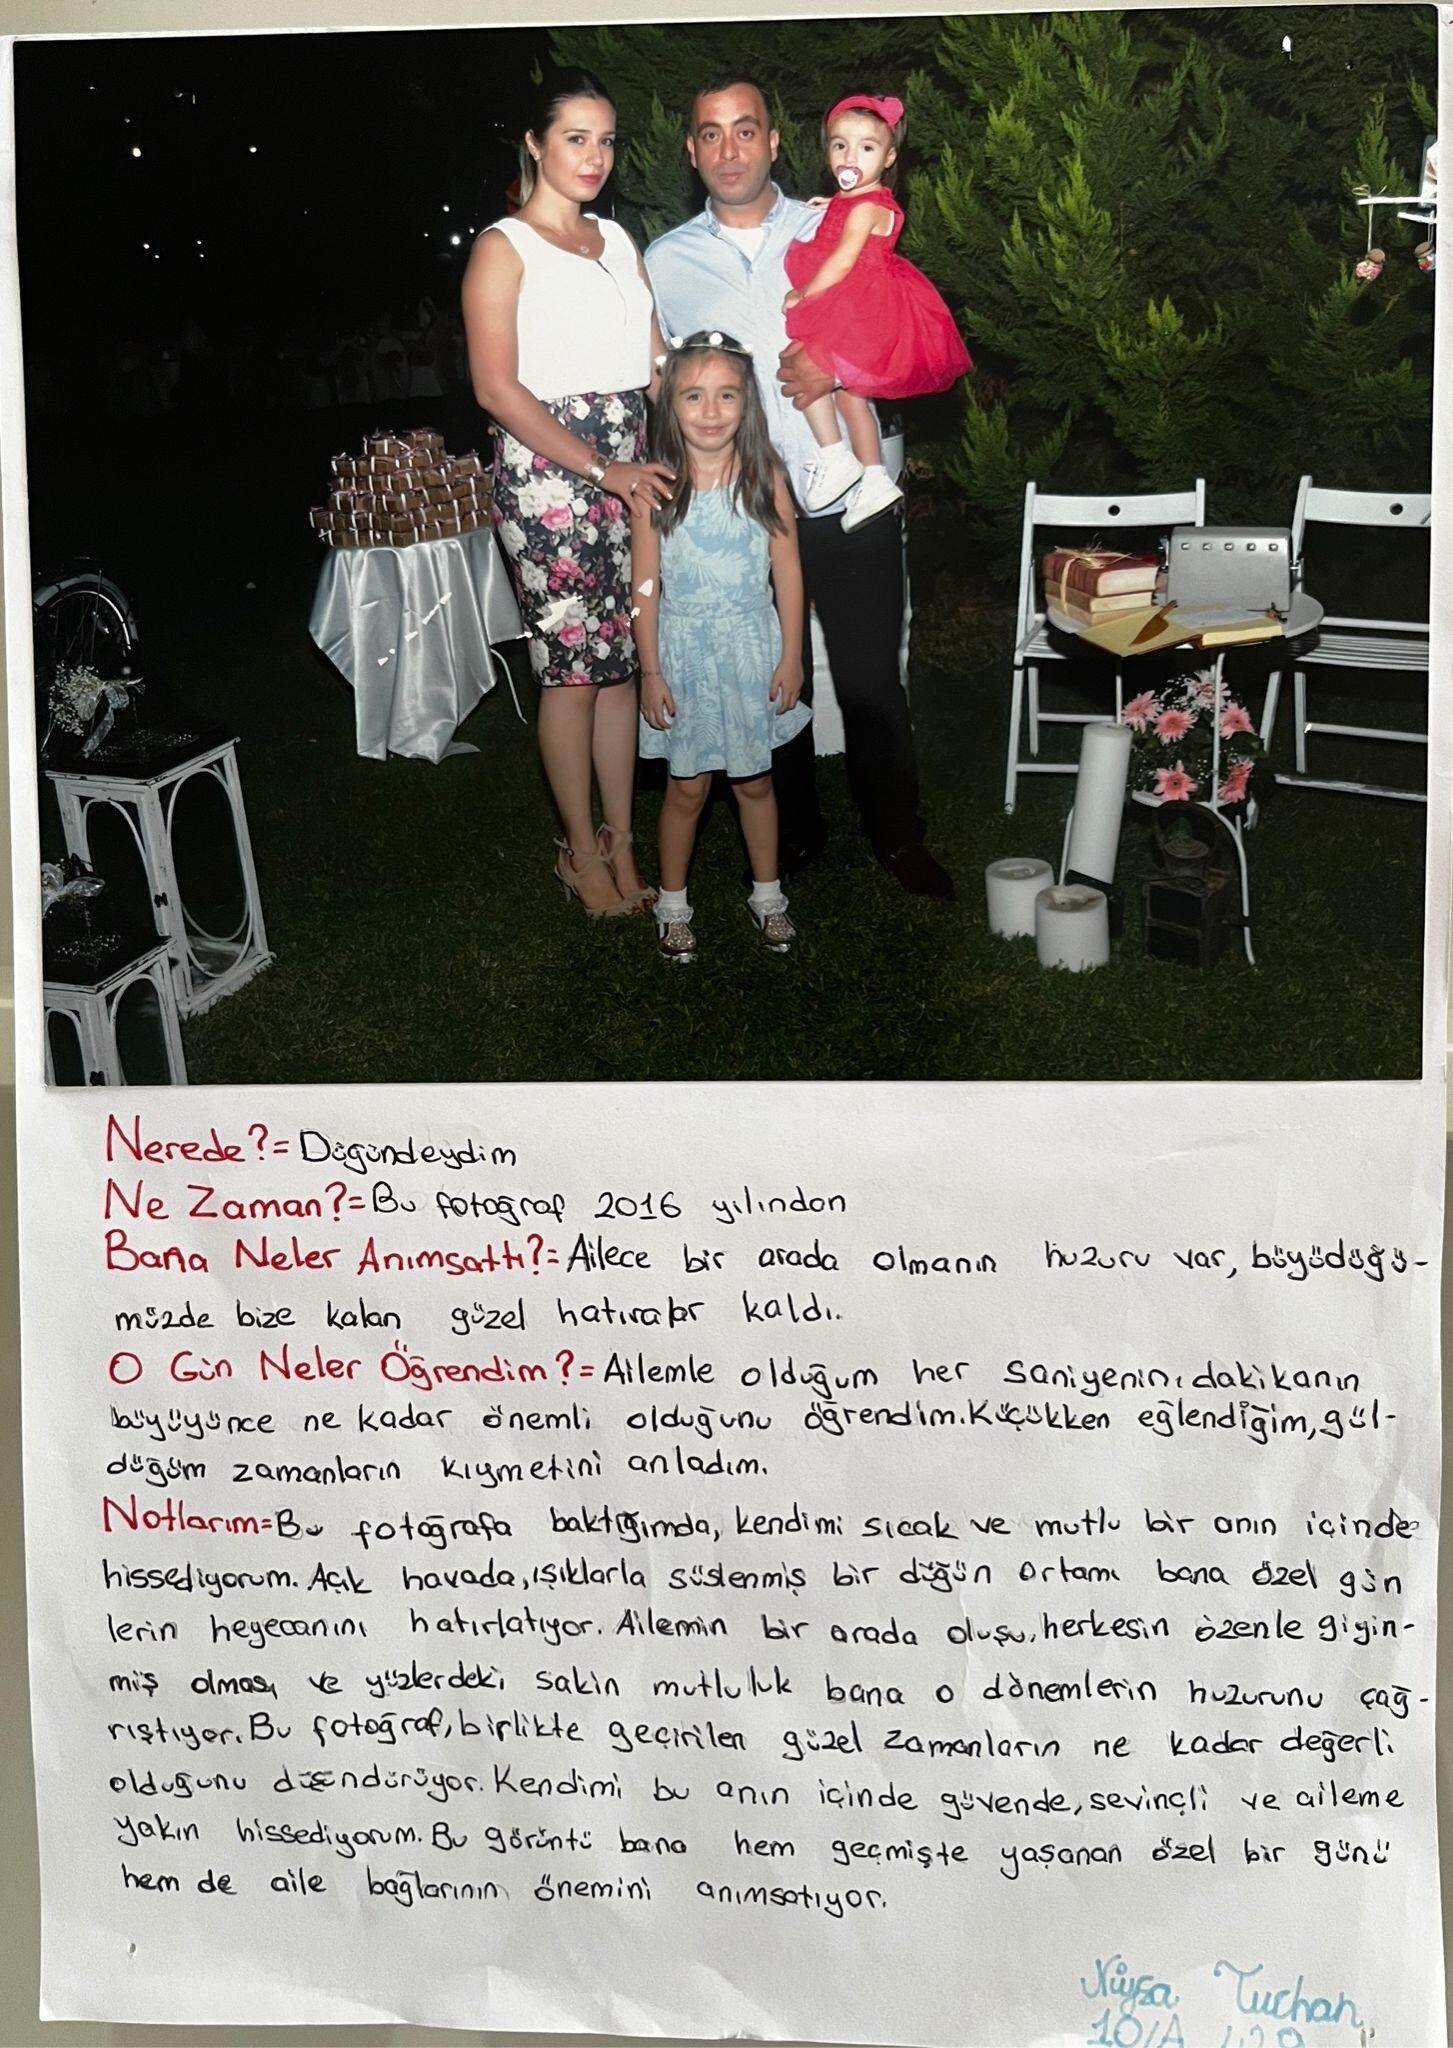 Nerede?= Düğündeydim
Ne Zaman?= Bu fotoğraf 2016 yılından
Bana Neler Anımsattı?= Ailece bir arada olmanın huzuru var, büyüdüğü-
müzde bize kalan güzel hatıralar kaldı.
O Gün Neler Öğrendim?= Ailemle olduğum her saniyenin, dakikanın
büyüyünce ne kadar önemli olduğunu öğrendim. Küçükken eğlendiğim, gül-
düğüm zamanların kıymetini anladım.
Notlarım= Bu fotoğrafa baktığımda, kendimi sıcak ve mutlu bir anın içinde
hissediyorum. Açık havada, ışıklarla süslenmiş bir düğün ortamı bana özel gün
lerin heyecanını hatırlatıyor. Ailemin bir arada oluşu, herkesin özenle giyin-
miş olması ve yüzlerdeki sakin mutluluk bana o dönemlerin huzurunu çağ-
rıştıyor. Bu fotoğraf, birlikte geçirilen güzel zamanların ne kadar değerli
olduğunu düşündürüyor. Kendimi bu anın içinde güvende, sevinçli ve aileme
yakın hissediyorum. Bu görüntü bana hem geçmişte yaşanan özel bir günü
hem de aile bağlarının önemini anımsatıyor.
Tuchan
10/A